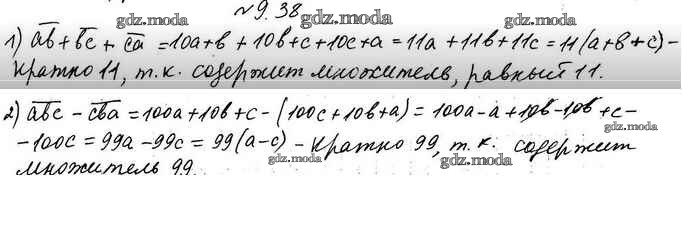 № 9.38
1) ab + bc + ca = 10a + b + 10b + c + 10c + a = 11a + 11b + 11c = 11(a + b + c) –
кратно 11, т.к. содержит множитель, равный 11.
2) abc – cba = 100a + 10b + c – (100c + 10b + a) = 100a – a + 10b – 10b + c –
– 100c = 99a – 99c = 99(a – c) – кратно 99, т.к. содержит
множитель 99.
gdz.moda
gdz.moda
gdz.moda
gdz.moda
gdz.moda
gdz.moda
gdz.moda
gdz.moda
gdz.moda